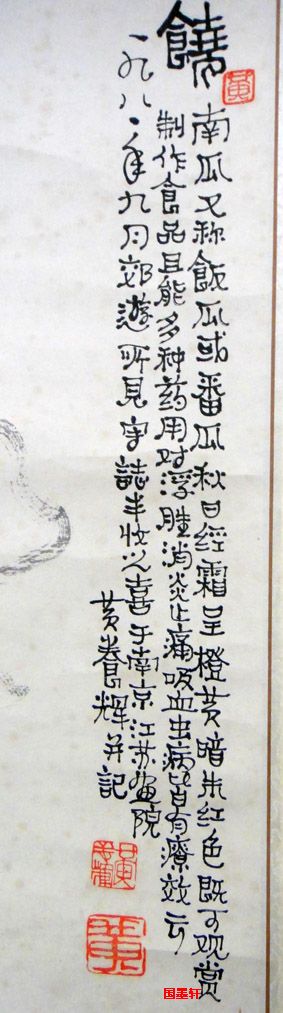 饒
南瓜又称飯瓜或番瓜秋日經霜呈橙黄暗朱红色既可观赏
制作食品且能多种药用对浮肿消炎止痛吸血虫病皆有療效云
一九八一年九月郊遊所見寫誌丰收之喜于南京江苏畫院
黄養輝并記
黄
黄
国墨轩